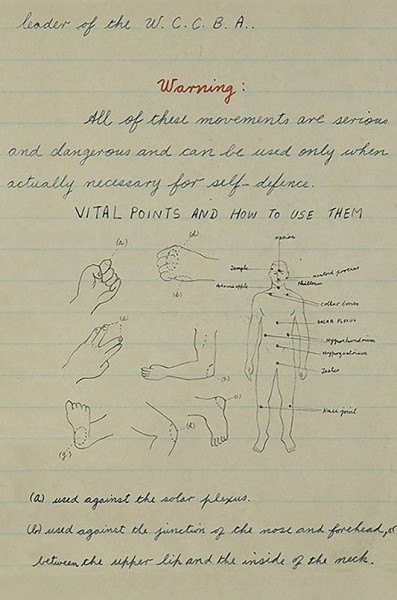 leader of the W. C. C. B. A..
Warning:
All of these movements are serious
and dangerous and can be used only when
actually necessary for self-defence.
VITAL POINTS AND HOW TO USE THEM
(a)
(d)
Temple
mastoid process
Adams apple
Philtrum
(b)
collar bones
SOLAR PLEXUS
Hypochondrium
Hypogastrium
Testes
Knee joint
(g)
(a) used against the solar plexus.
(b) used against the junction of the nose and forehead, or
between the upper lip and the inside of the neck.